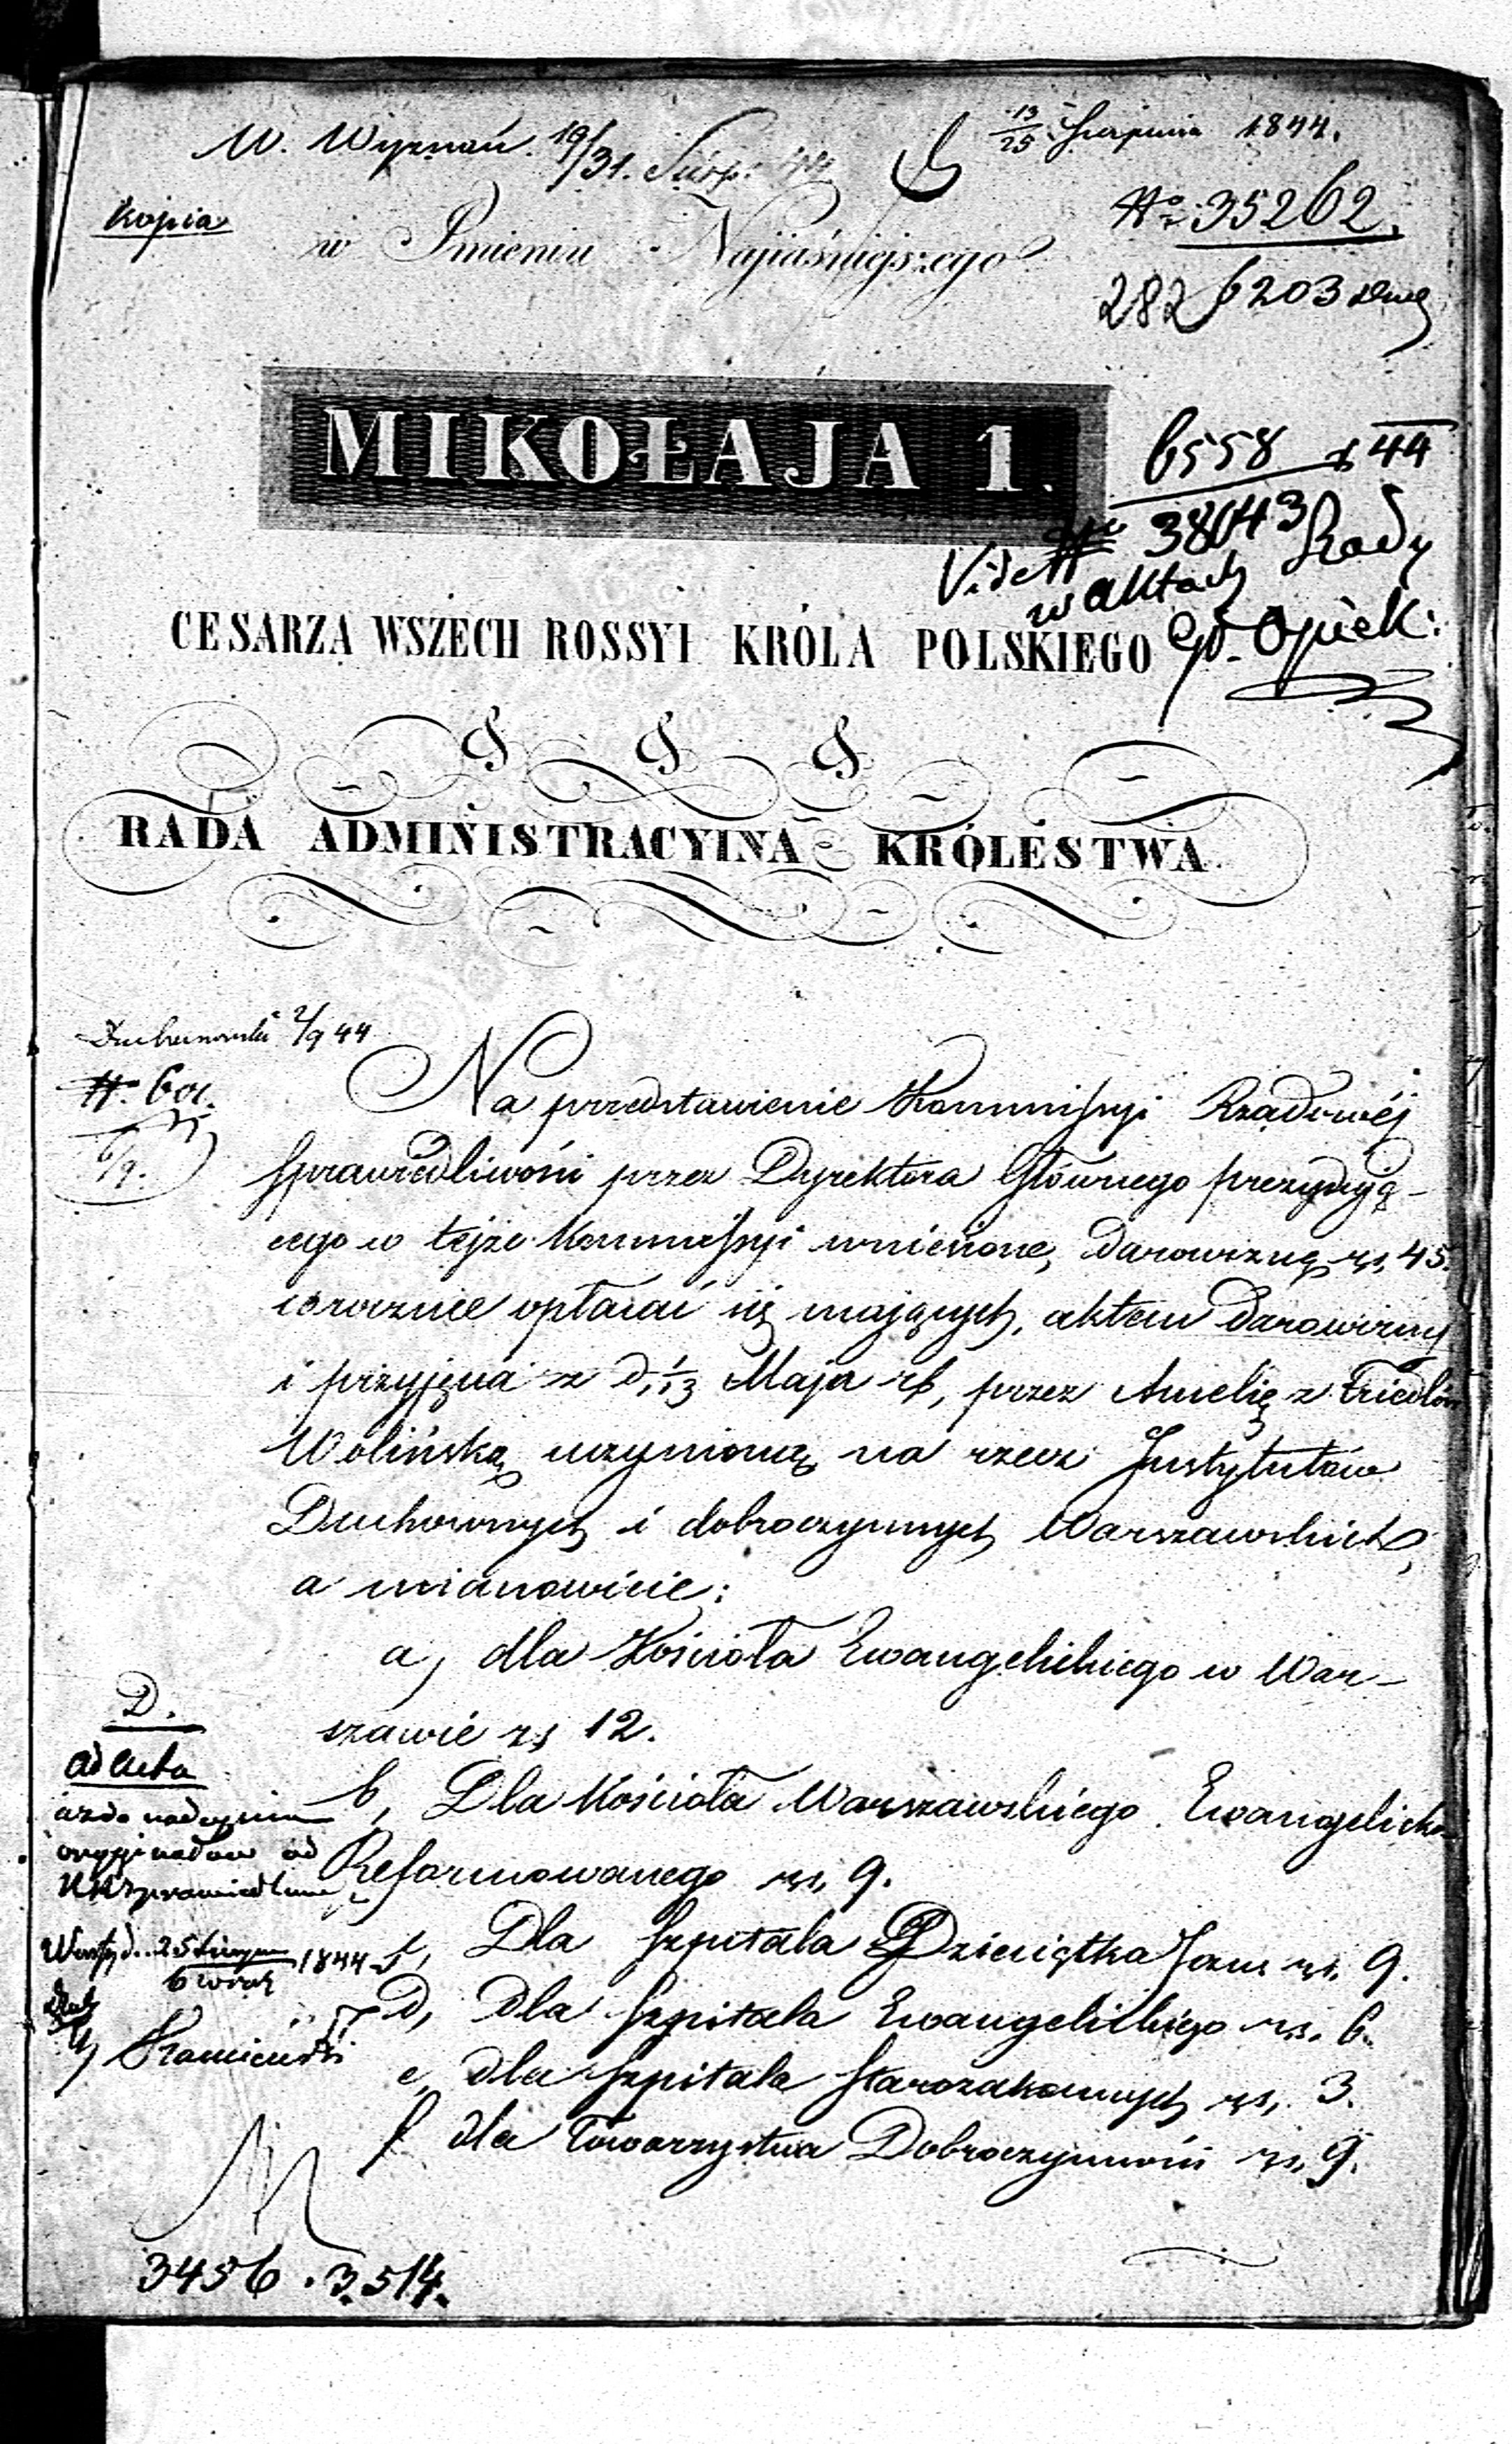 W. Wyznań. 19/31. Sierp. 44
13/25 Sierpnia 1844.
Kopia
No 35262.
w Imieniu Najjaśniejszego
282 6203
MIKOŁAJA 1.
6558 44
Vide No 38043
w aktach Rady
Gł. Opiek:
CESARZA WSZECH ROSSYI KRÓLA POLSKIEGO
RADA ADMINISTRACYINA KRÓLESTWA
2/9 44
No 601.
Na przedstawienie Kommissyi Rządowéj
Sprawiedliwości przez Dyrektora Głównego prezydują-
cego w tejże Kommissyi wniesione, darowiznę rs, 45.
corocznie opłacać się mających, aktem darowizny
i przyjęcia z d, 1/13 Maja rb, przez Amelię z Friedlów
Wolińską uczynioną na rzecz Instytutów
Duchownych i dobroczynnych Warszawskich,
a mianowicie:
a, dla Kościoła Ewangelickiego w War-
szawie rs 12.
b, Dla Kościoła Warszawskiego Ewangelicko
Reformowanego rs, 9.
c, Dla Szpitala Dzieciątka Jezus rs. 9.
d, dla Szpitala Ewangelickiego rs. 6.
e, dla Szpitala Starozakonnych rs, 3.
f dla Towarzystwa Dobroczynności rs, 9.
D.
ad acta
aż do nadejścia
oryginałów od
KRSprawiedliwości
1844
3456 . 3514.